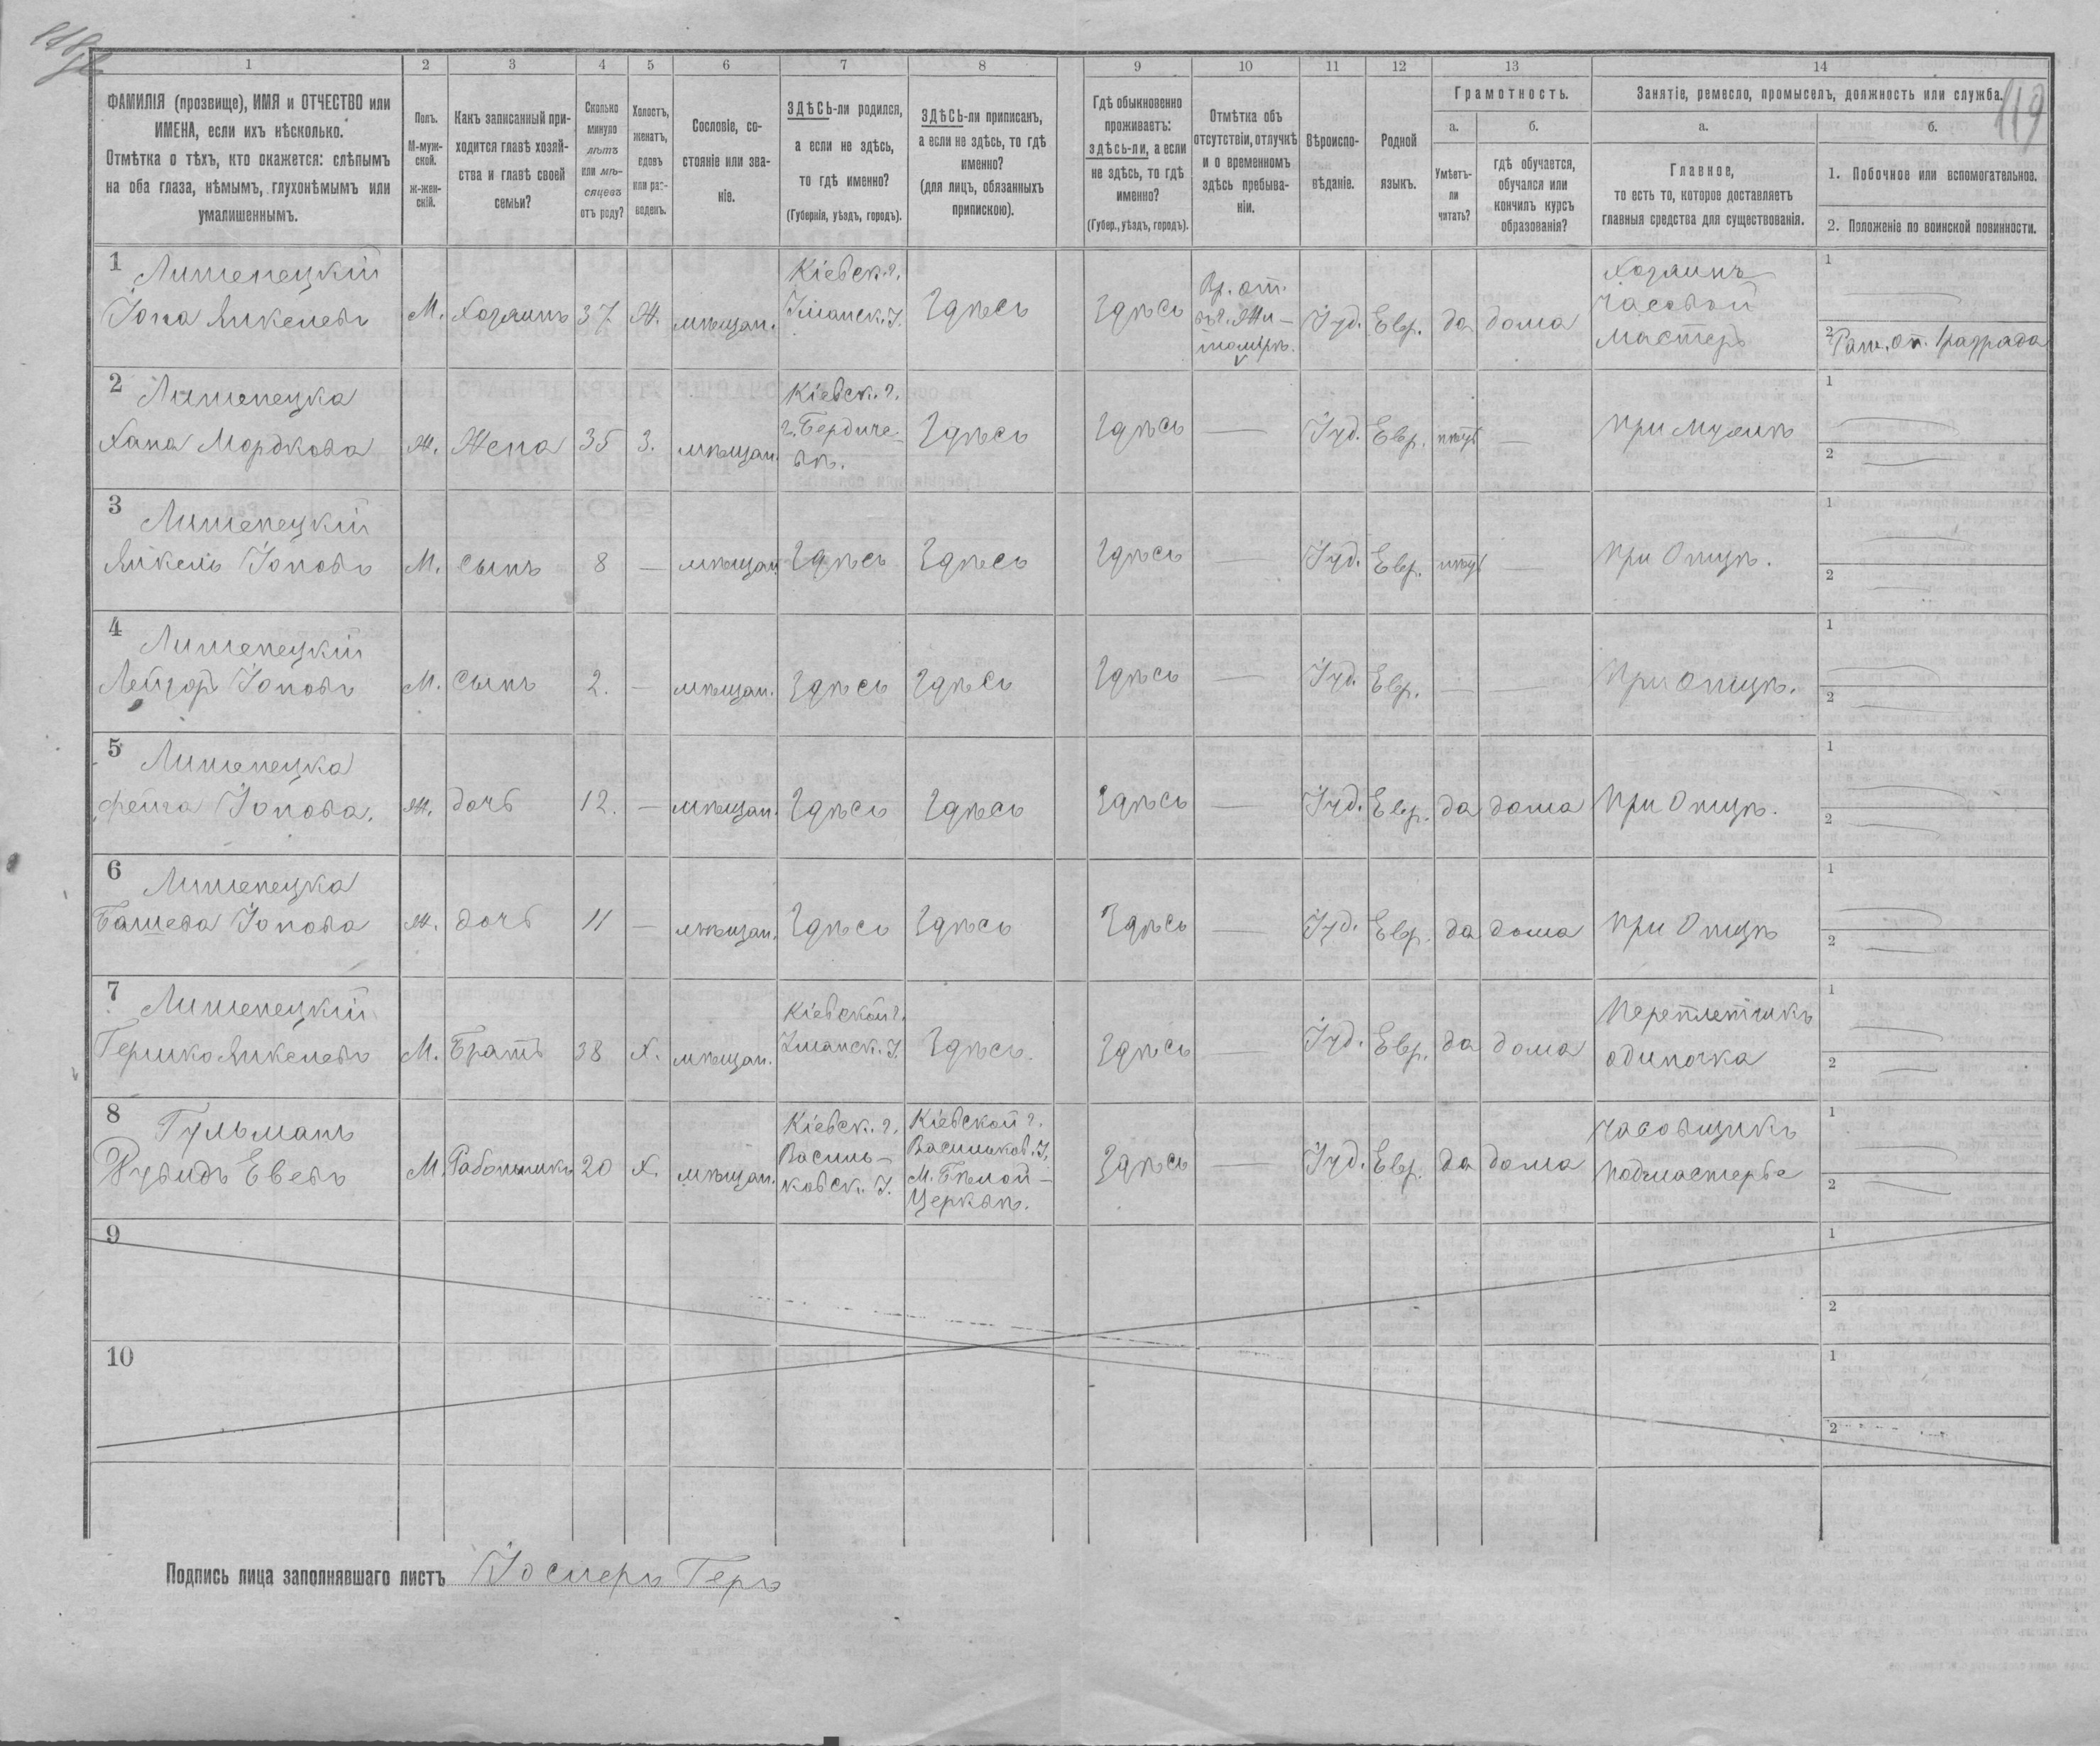 118 об
119
1 2 3 4 5 6 7 8 9 10 11 12 13 14
ФАМИЛІЯ (прозвище), ИМЯ и ОТЧЕСТВО или
ИМЕНА, если ихъ нѣсколько.
Отмѣтка о тѣхъ, кто окажется: слѣпымъ
на оба глаза, нѣмымъ, глухонѣмымъ или
умалишеннымъ.
Полъ.
М-муж-
ской.
ж-жен-
скій.
Какъ записанный при-
ходится главѣ хозяй-
ства и главѣ своей
семьи?
Сколько
минуло
лѣтъ
или мѣ-
сяцевъ
отъ роду?
Холостъ,
женатъ,
вдовъ
или раз-
веденъ.
Сословіе, со-
стояніе или зва-
ніе.
ЗДѢСЬ-ли родился,
а если не здѣсь,
то гдѣ именно?
(Губернія, уѣздъ, городъ).
ЗДѢСЬ-ли приписанъ,
а если не здѣсь, то гдѣ
именно?
(для лицъ, обязанныхъ
припискою).
Гдѣ обыкновенно
проживаетъ:
здѣсь-ли, а если
не здѣсь, то гдѣ
именно?
(Губер., уѣздъ, городъ).
Отмѣтка объ
отсутствіи, отлучкѣ
и о временномъ
здѣсь пребыва-
ніи.
Вѣроиспо-
вѣданіе.
Родной
языкъ.
Грамотность.
а.
Умѣетъ-
ли
читать?
б.
гдѣ обучается,
обучался или
кончилъ курсъ
образованія?
Занятіе, ремесло, промыселъ, должность или служба.
а.
Главное,
то есть то, которое доставляетъ
главныя средства для существованія.
б.
1. Побочное или вспомогательное.
2. Положеніе по воинской повинности.
1 Лишенецкій
Іона Янкелевъ
М. Хозяинъ 37 Ж. мѣщан.
Кіевск. г.
Уманск. У.
Здѣсь Здѣсь
Вр. от.
въ г. Жи-
томірѣ.
Іуд. Евр. да дома
Хозяинъ
часовой
мастеръ
1
2 Рат. оп. 1 разряда
2 Лишенецка
Хана Мордкова
Ж. Жена 35 З. мѣщан.
Кіевск. г.
г. Бердиче-
вѣ.
Здѣсь Здѣсь — Іуд. Евр. нѣтъ —
при Мужѣ
1
2
3 Лишенецкій
Янкель Іоновъ
М. сынъ 8 — мѣщан. Здѣсь Здѣсь Здѣсь — Іуд. Евр. нѣтъ — при Отцѣ.
1
2
4 Лишенецкій
Лейзоръ Іоновъ
М. сынъ 2. — мѣщан. Здѣсь Здѣсь Здѣсь — Іуд. Евр. — — при отцѣ.
1
2
5 Лишенецка
Фейга Іонова.
Ж. дочь 12. — мѣщан. Здѣсь Здѣсь Здѣсь — Іуд. Евр. да дома при Отцѣ.
1
2
6 Лишенецка
Башева Іонова
Ж. дочь 11 — мѣщан. Здѣсь Здѣсь Здѣсь — Іуд. Евр. да дома при Отцѣ
1
2
7 Лишенецкій
Гершко Янкелевъ
М. Братъ 38 Х. мѣщан.
Кіевской г.
Уманск. У.
Здѣсь. Здѣсь — Іуд. Евр. да дома
Переплетчикъ
одиночка
1
2
8 Гульманъ
Рувидъ Евевъ
М. Работникъ 20 Х. мѣщан.
Кіевск. г.
Василь-
ковск. У.
Кіевской г.
Васильков. У.
М. Бѣлой-
Церквѣ.
Здѣсь — Іуд. Евр. да дома
Часовщикъ
подмастерье
1
2
9
1
2
10
1
2
Подпись лица заполнявшаго листъ